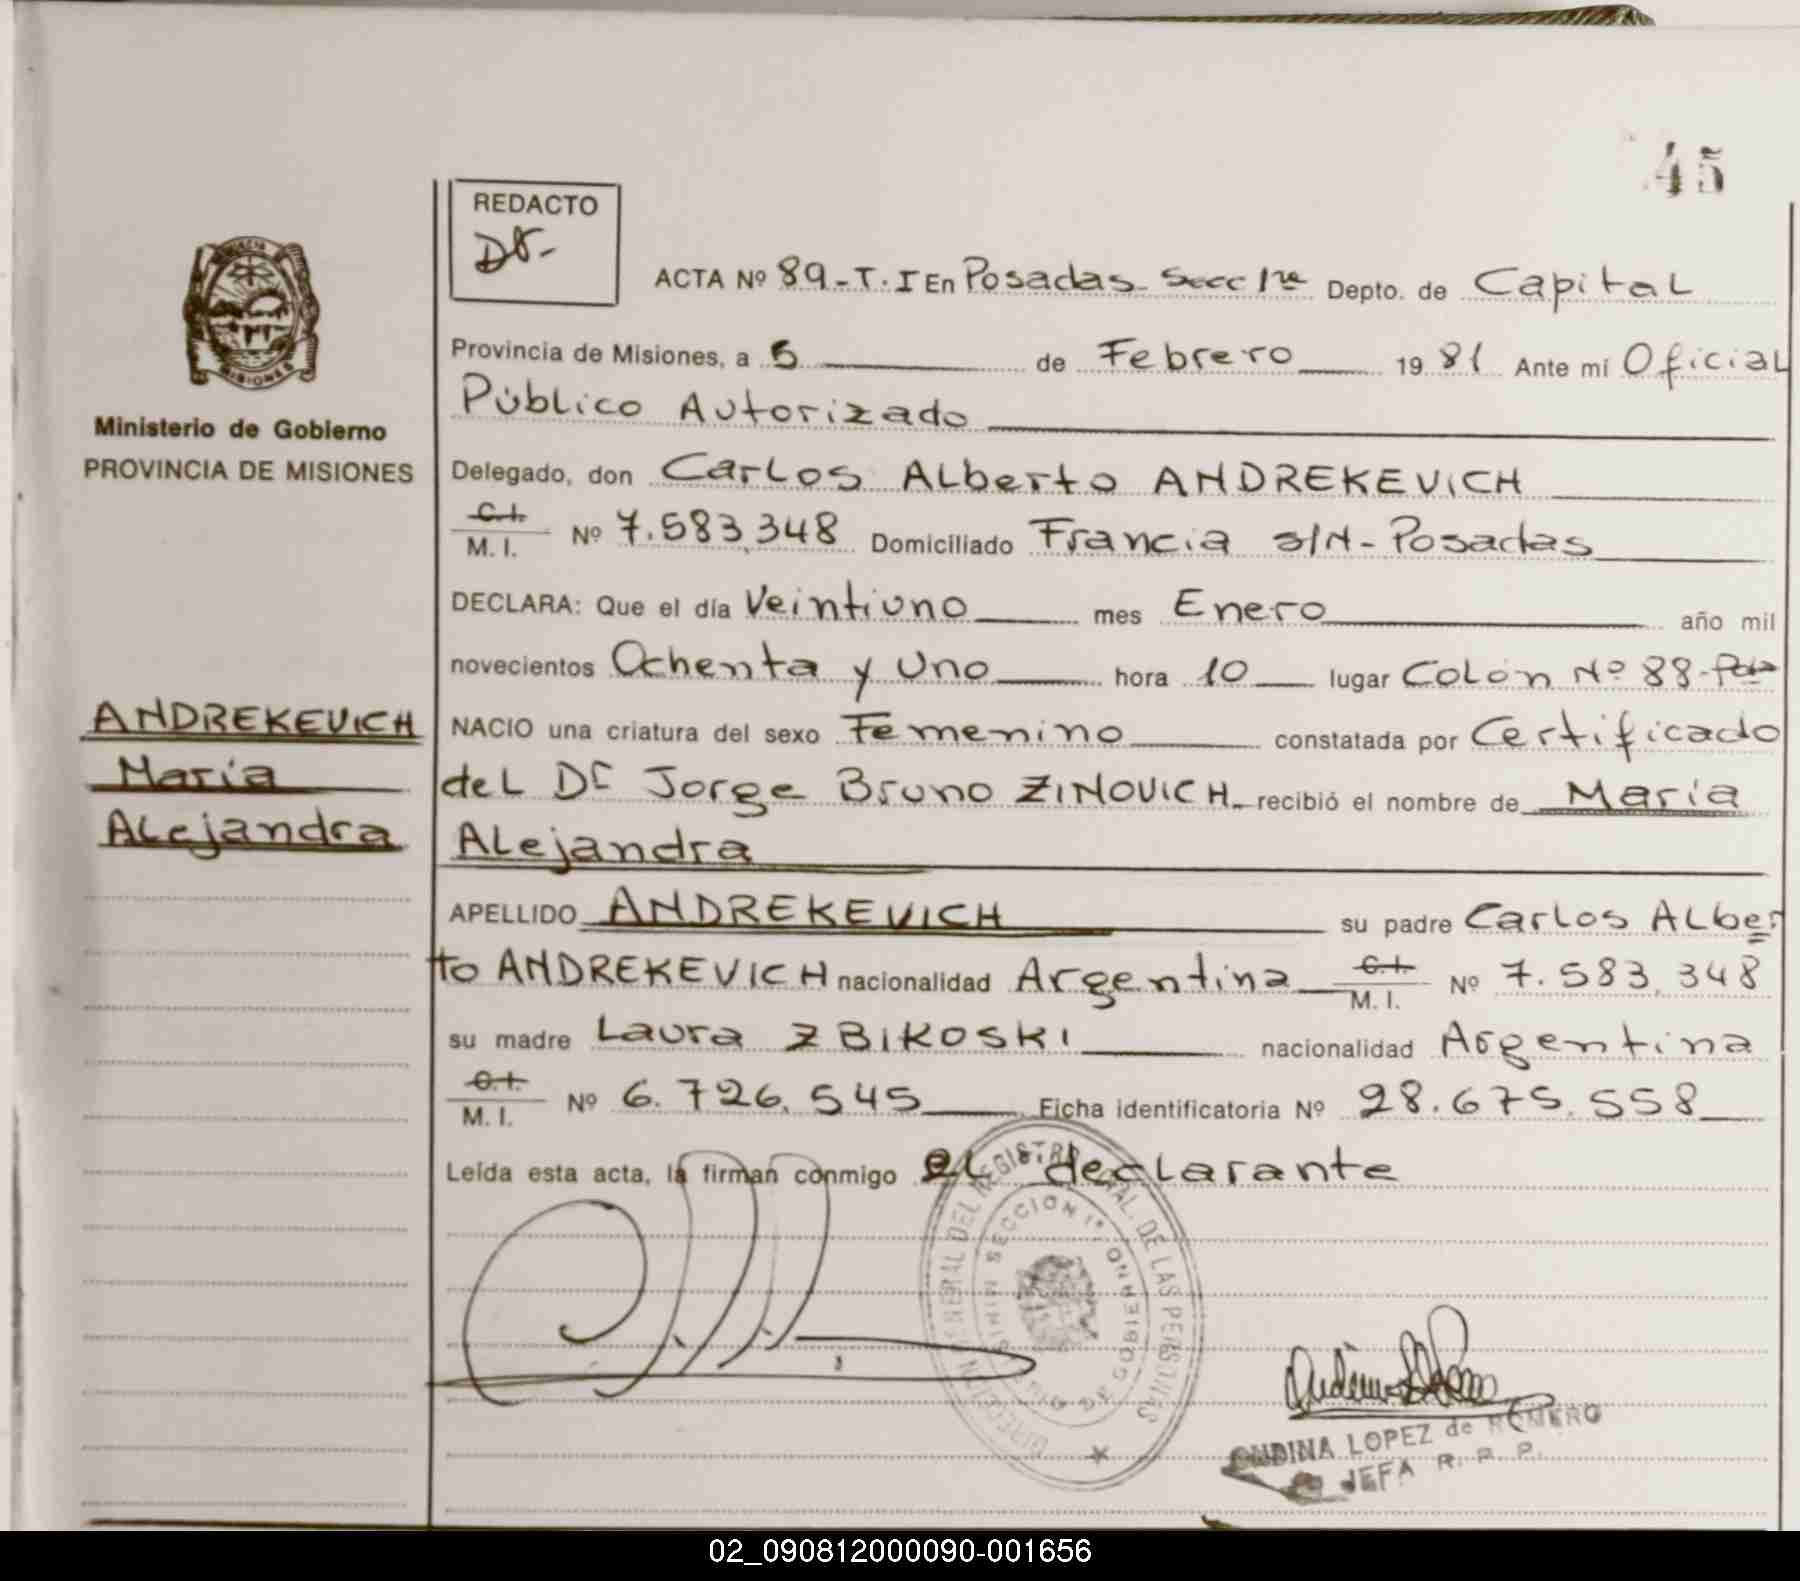 45
REDACTO
PROVINCIA DE MISIONES
Ministerio de Gobierno
PROVINCIA DE MISIONES
ACTA Nº 89-T.I En Posadas Secc 1ra Depto. de Capital
Provincia de Misiones, a 5 de Febrero 1981 Ante mí Oficial
Público Autorizado
Delegado, don Carlos Alberto ANDREKEVICH
C.I. M.I. Nº 7.583.348 Domiciliado Francia s/N-Posadas
DECLARA: Que el día Veintiuno mes Enero año mil
novecientos Ochenta y Uno hora 10 lugar Colón Nº 88-Pdas
NACIO una criatura del sexo Femenino constatada por Certificado
del Dr Jorge Bruno ZINOVICH recibió el nombre de María
Alejandra
ANDREKEVICH
María
Alejandra
APELLIDO ANDREKEVICH su padre Carlos Alber
to ANDREKEVICH nacionalidad Argentina C.I. M.I. Nº 7.583.348
su madre Laura ZBIKOSKI nacionalidad Argentina
C.I. M.I. Nº 6.726.545 Ficha identificatoria Nº 28.675.558
Leída esta acta, la firman conmigo el declarante
DIRECCION GENERAL DEL REGISTRO DE LAS PERSONAS
SECCION 1ª
DE GOBIERNO
ONDINA LOPEZ de ROMERO
JEFA R. P. P.
02_090812000090-001656